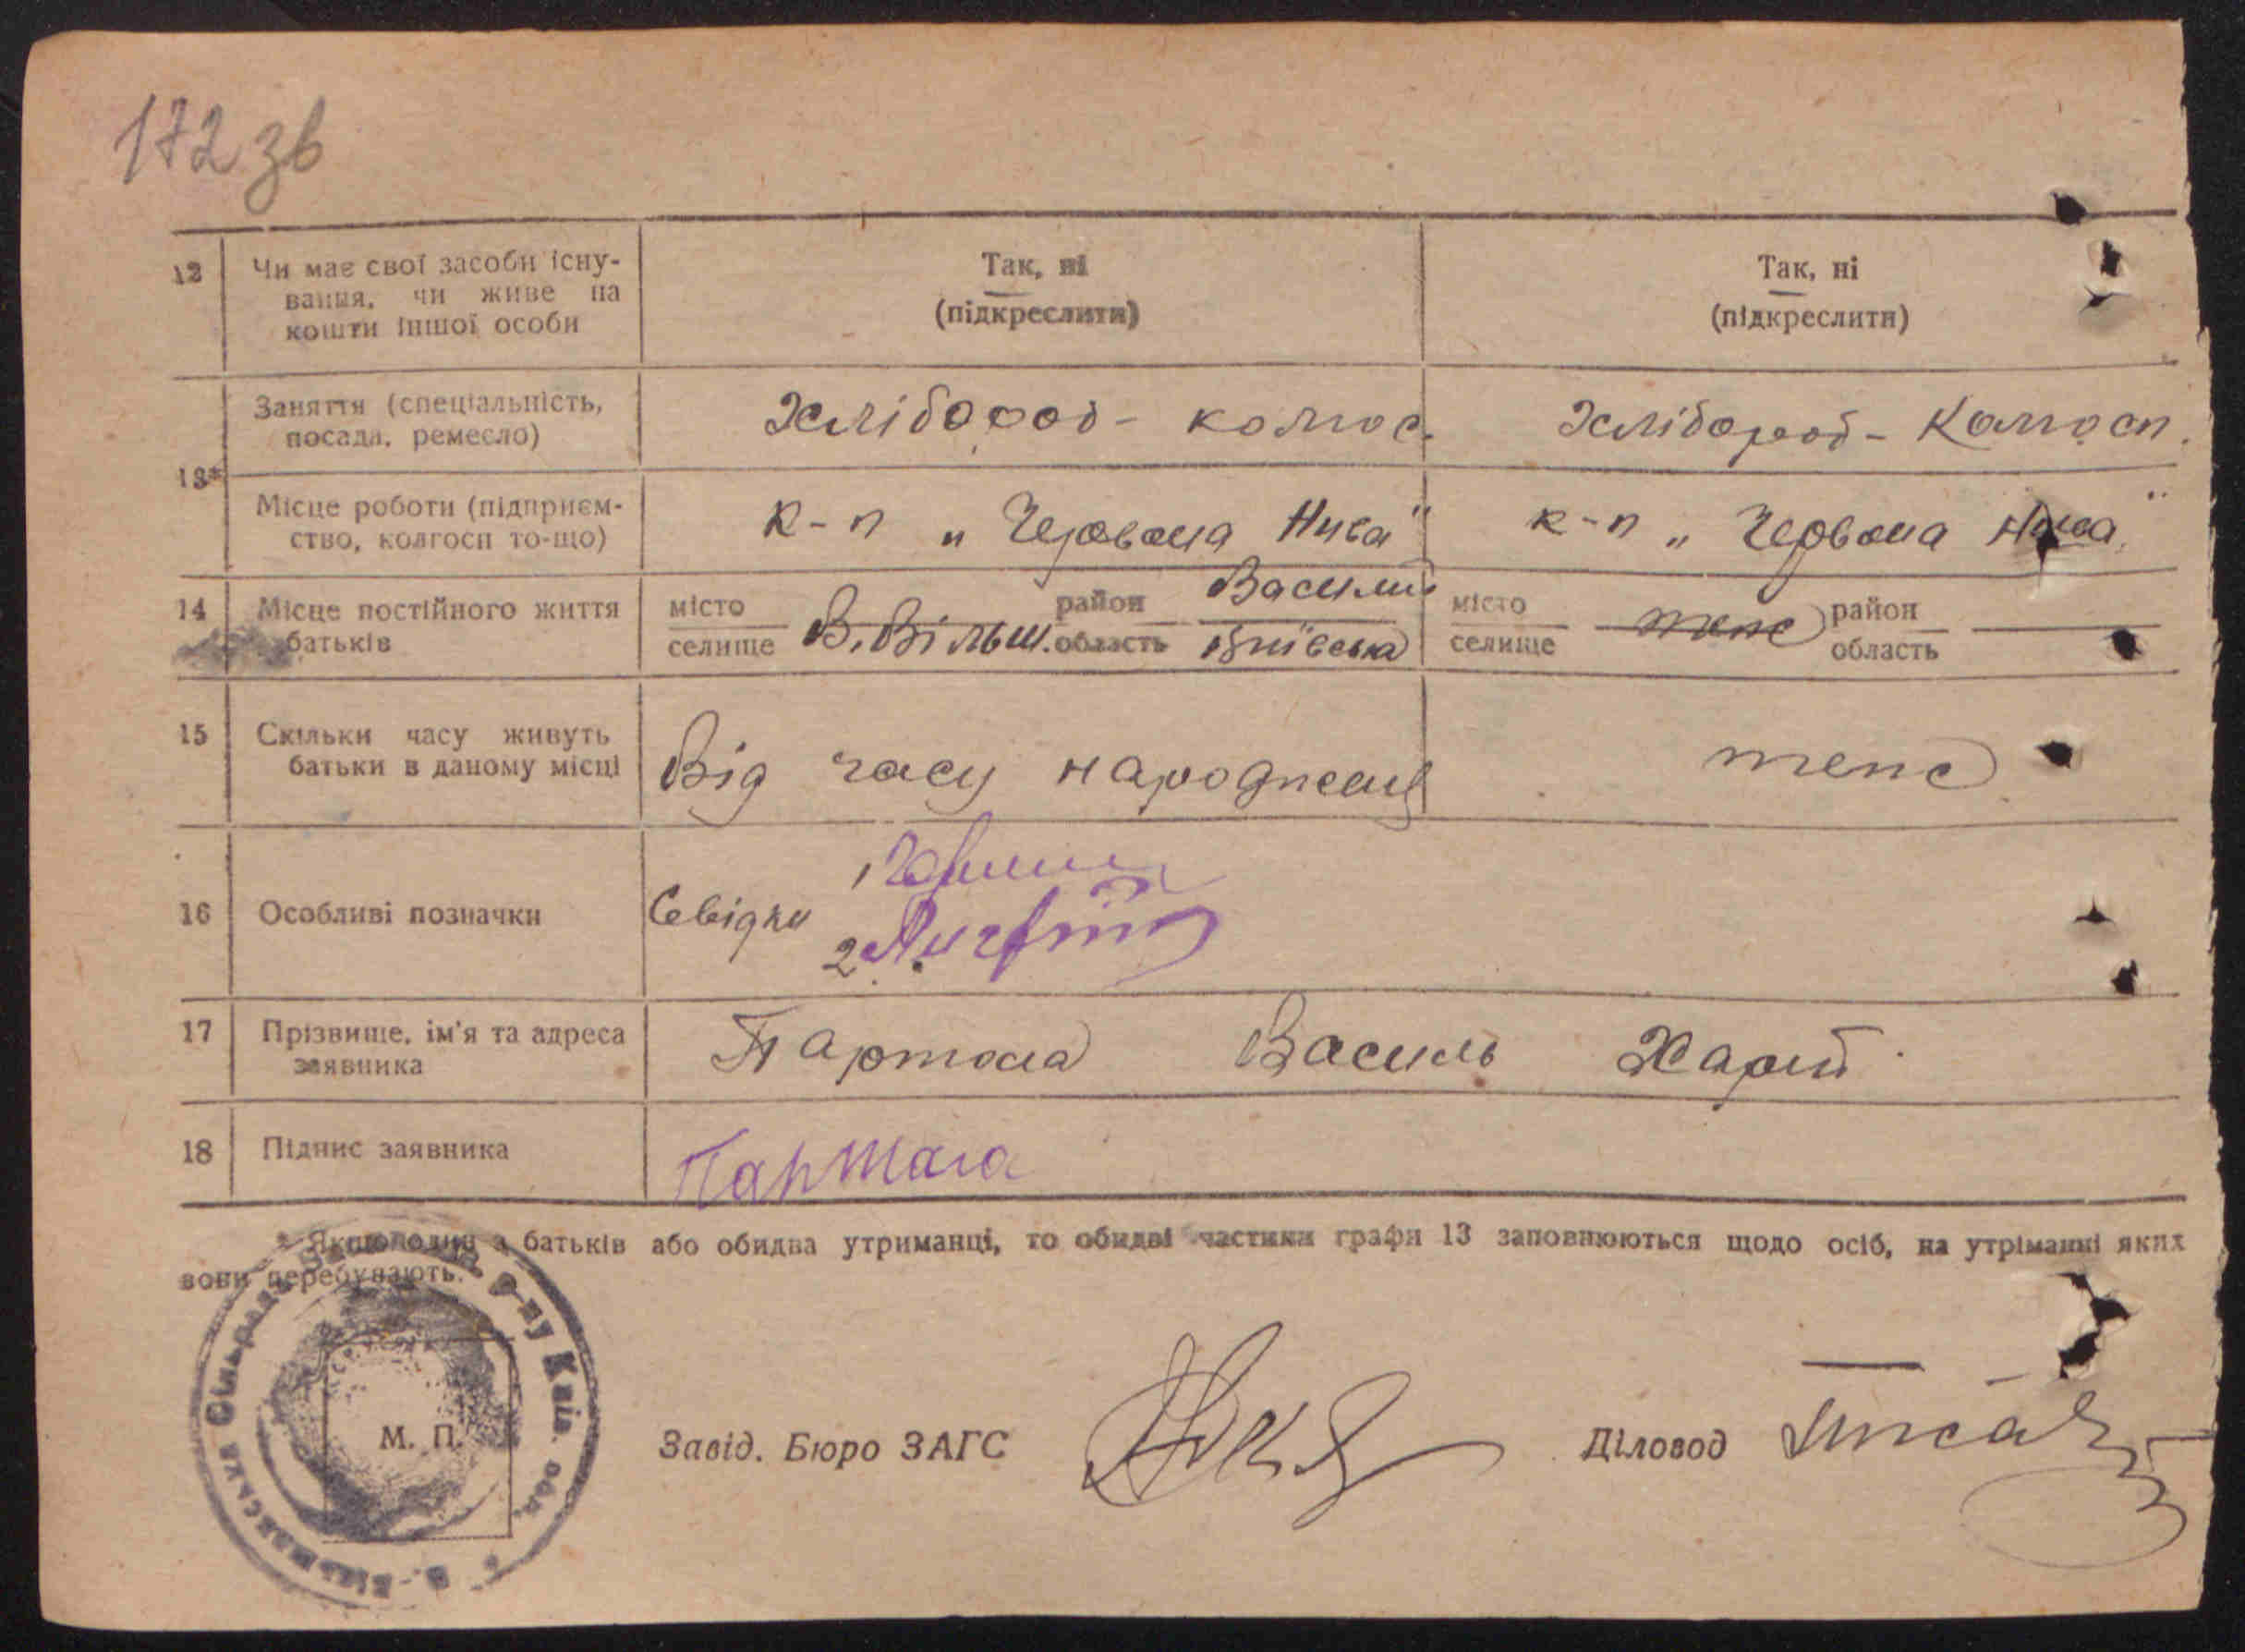 172 зв
12 Чи має свої засоби існу-
вання, чи живе на
кошти іншої особи
Так, ні
(підкреслити)
Так, ні
(підкреслити)
13*
Заняття (спеціальність,
посада, ремесло)
Хлібороб - колгос.
Хлібороб - Колгосп.
Місце роботи (підприєм-
ство, колгосп то-що)
к-п „Червона Нива"
к-п „Червона Нива"
14 Місце постійного життя
батьків
місто
селище
В. Вільш.
район
область
Васильк
Київська
місто
селище
теж
район
область
15 Скільки часу живуть
батьки в даному місці
Від часу народження
теж
16 Особливі позначки
Свідки
1
2
17 Прізвище, ім'я та адреса
заявника
Партола Василь Харит.
18 Підпис заявника
Партала
* Якщо один з батьків або обидва утриманці, то обидві частини графи 13 заповнюються щодо осіб, на утріманні яких
вони перебувають.
В.-Вільшанська Сільрада р-ну Київ. обл.
М. П.
Завід. Бюро ЗАГС
Діловод